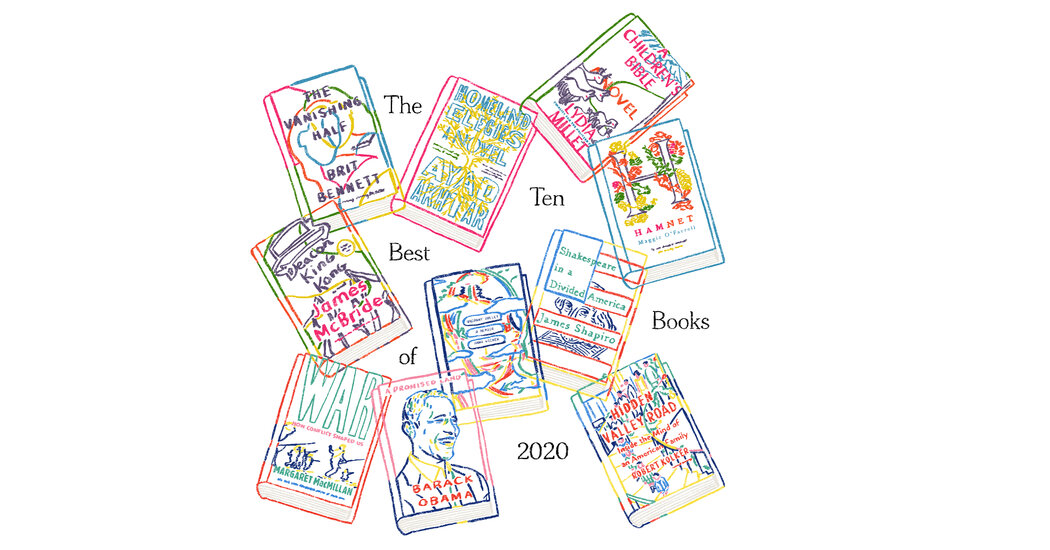 The
Ten
Best
Books
of
2020
THE
VANISHING
HALF
BRIT
BENNETT
HOMELAND
ELEGIES
A NOVEL
AYAD
AKHTAR
A
CHILDREN'S
BIBLE
A NOVEL
LYDIA
MILLET
H
HAMNET
Maggie O'Farrell
Deacon
King
Kong
James
McBride
UNCANNY VALLEY
A MEMOIR
ANNA WIENER
Shakespeare
in a
Divided America
James Shapiro
WAR
HOW CONFLICT SHAPED US
MARGARET MACMILLAN
A PROMISED LAND
BARACK
OBAMA
HIDDEN
VALLEY ROAD
Inside the Mind of
an American Family
ROBERT KOLKER